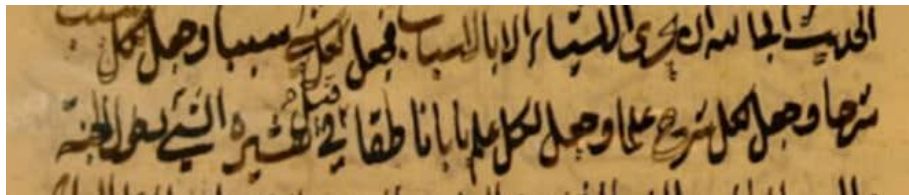 الحديث ابا لله ان يجرى الاشياء الا بالاسباب فجعل لكل شئ سببا وجعل لكل سبب
شرحا وجعل لكل شرح علما وجعل لكل علم بابا ناطقا قيل في تفسيره الشئ يعنى الجنة